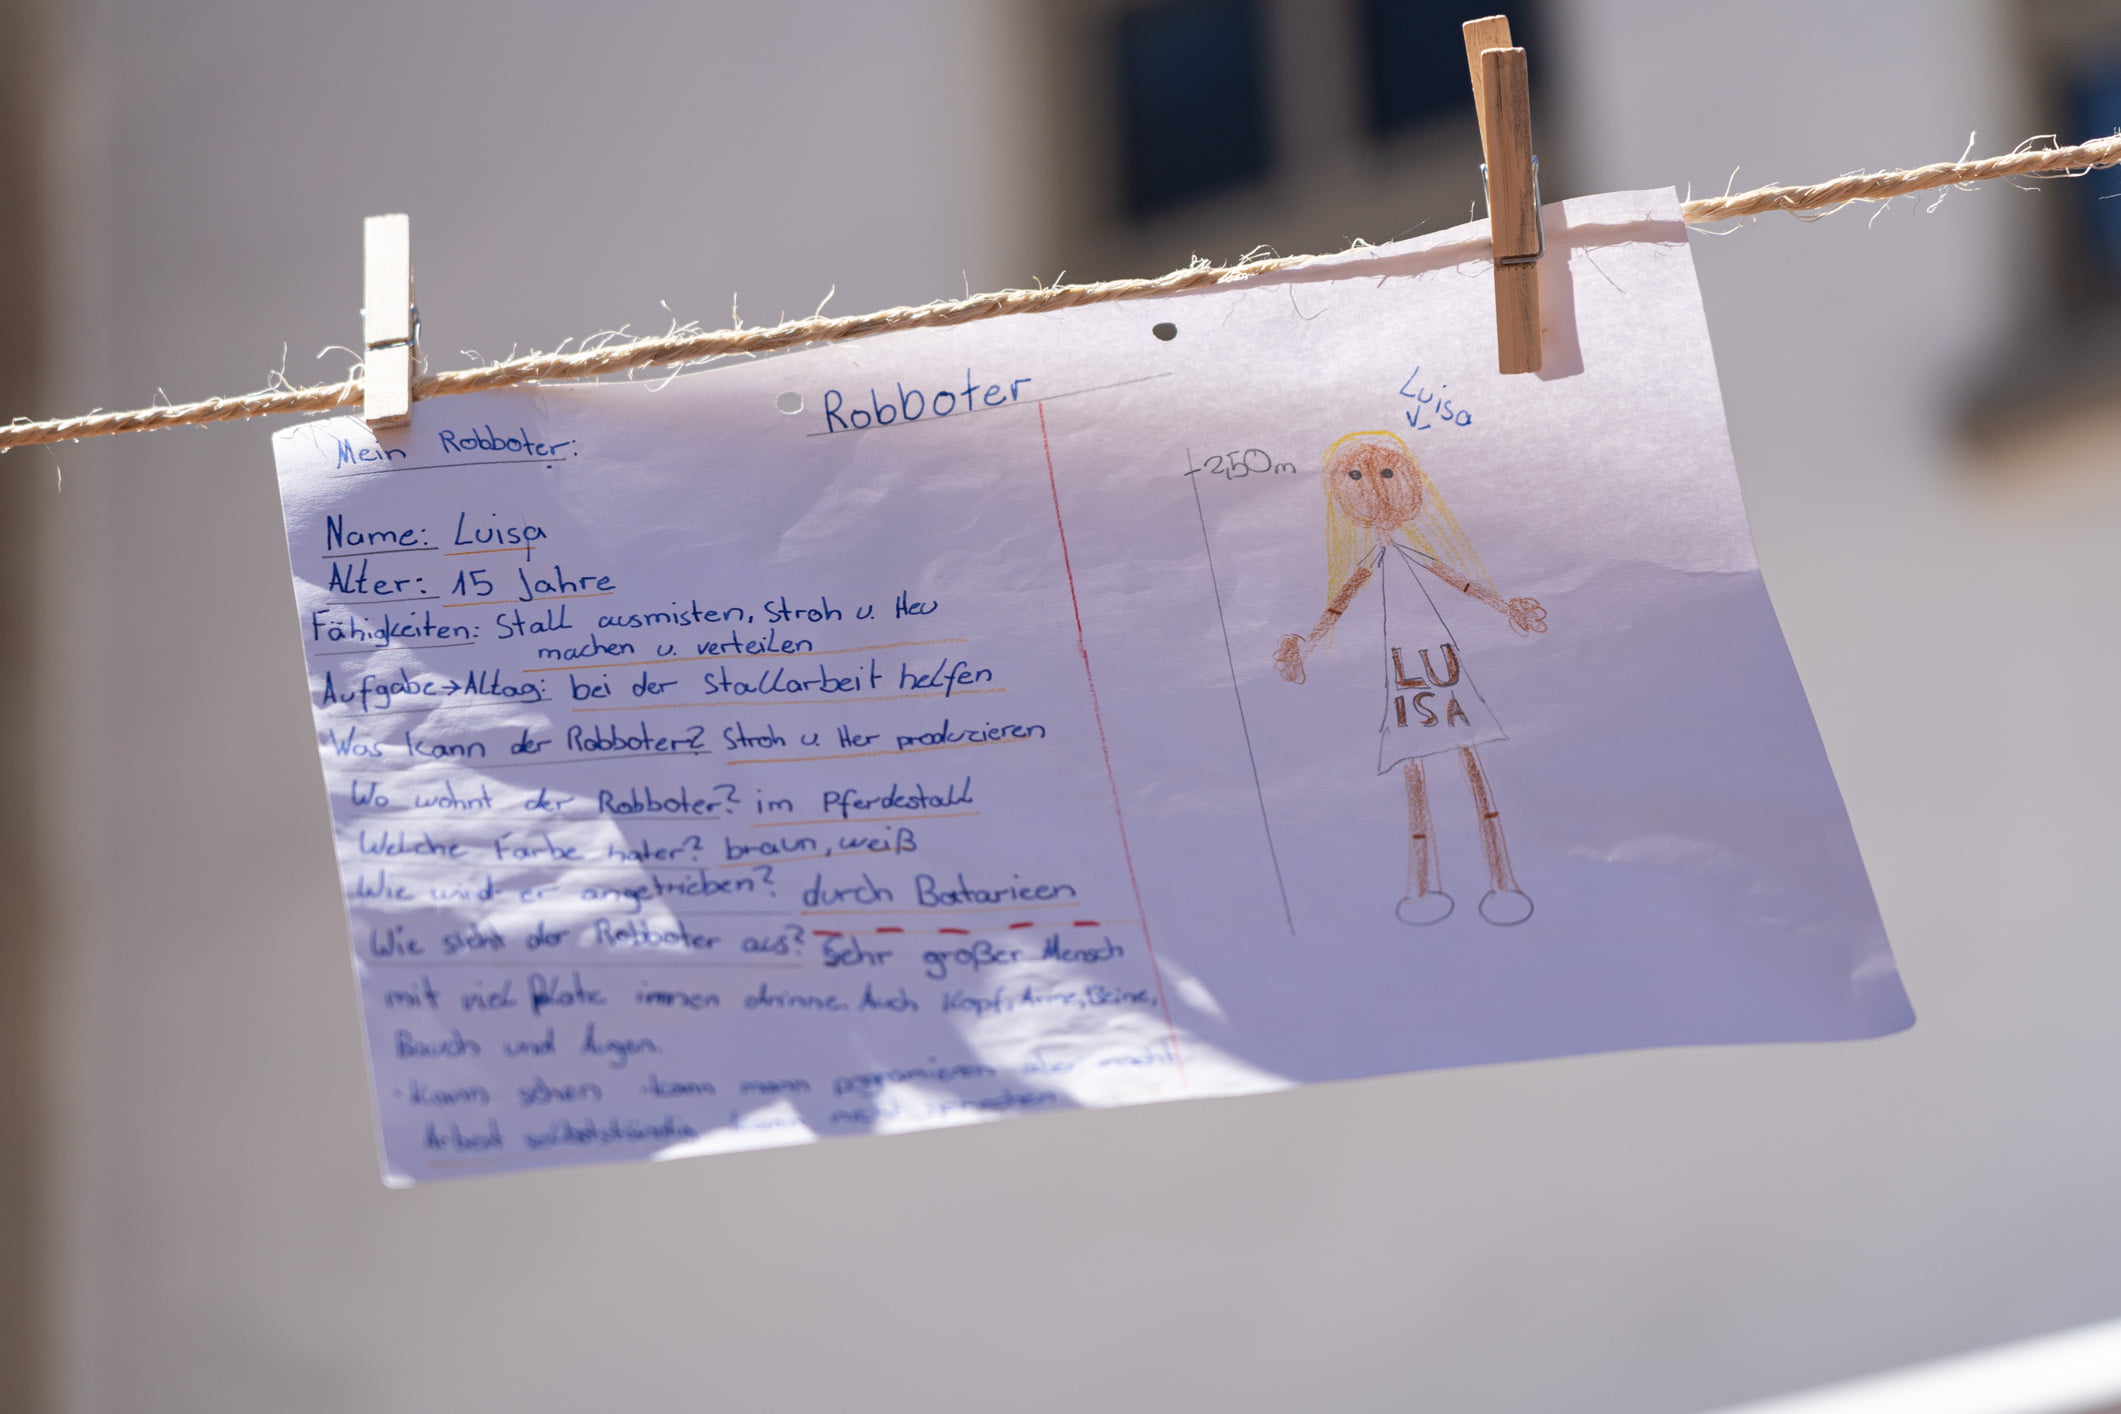 Robboter
Mein Robboter:
Name: Luisa
Alter: 15 Jahre
Fähigkeiten: Stall ausmisten, Stroh u. Heu
machen u. verteilen
Aufgabe→Altag: bei der Stallarbeit helfen
Was kann der Robboter? Stroh u. Her produzieren
Wo wohnt der Robboter? im Pferdestall
Welche Farbe hater? braun, weiß
Wie wird er angetrieben? durch Batarieen
Wie sieht der Robboter aus? Sehr großer Mensch
mit viel Plate innen drinne. Auch Kopf, Arme, Beine,
Bauch und Augen.
-kann sehen -kann mann programieren aber macht
Arbeit selbstständig kann nicht sprechen
Luisa
2,50m
LU
ISA